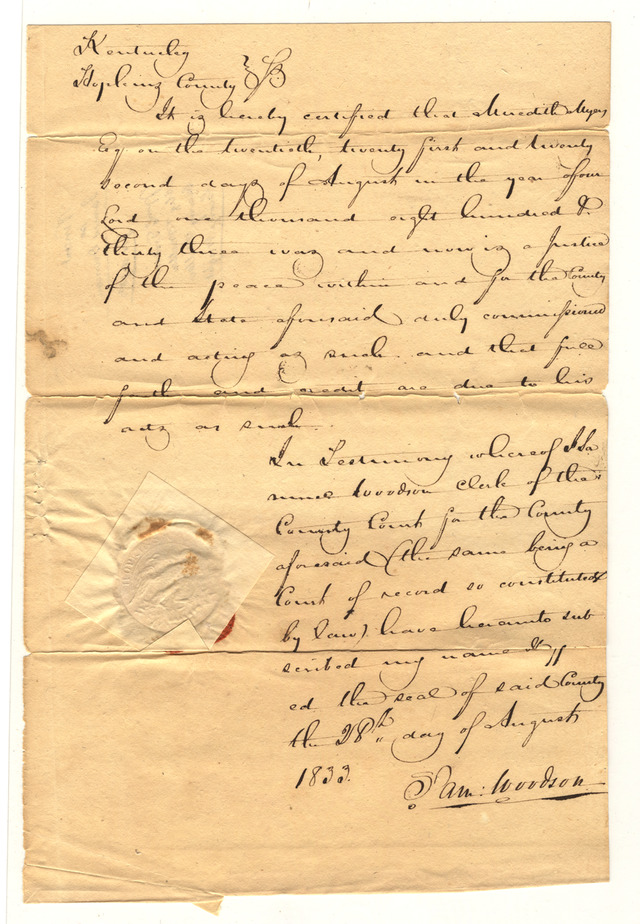 Kentucky
Hopkins County
It is hereby certified that Meredith Myers
Esq on the twentieth, twenty first and twenty
second days of August in the year of our
Lord one thousand eight hundred &
thirty three was and now is a Justice
of the peace within and for the County
and State aforesaid duly commissioned
and acting as such and that full
faith and credit are due to his
acts as such.
In Testimony whereof I Sa
muel Woodson Clerk of the
County Court for the County
aforesaid (the same being a
Court of record so constituted
by Law) have hereunto sub
scribed my name &
ed the seal of said County
the 28th day of August
1833.
Sam: Woodson